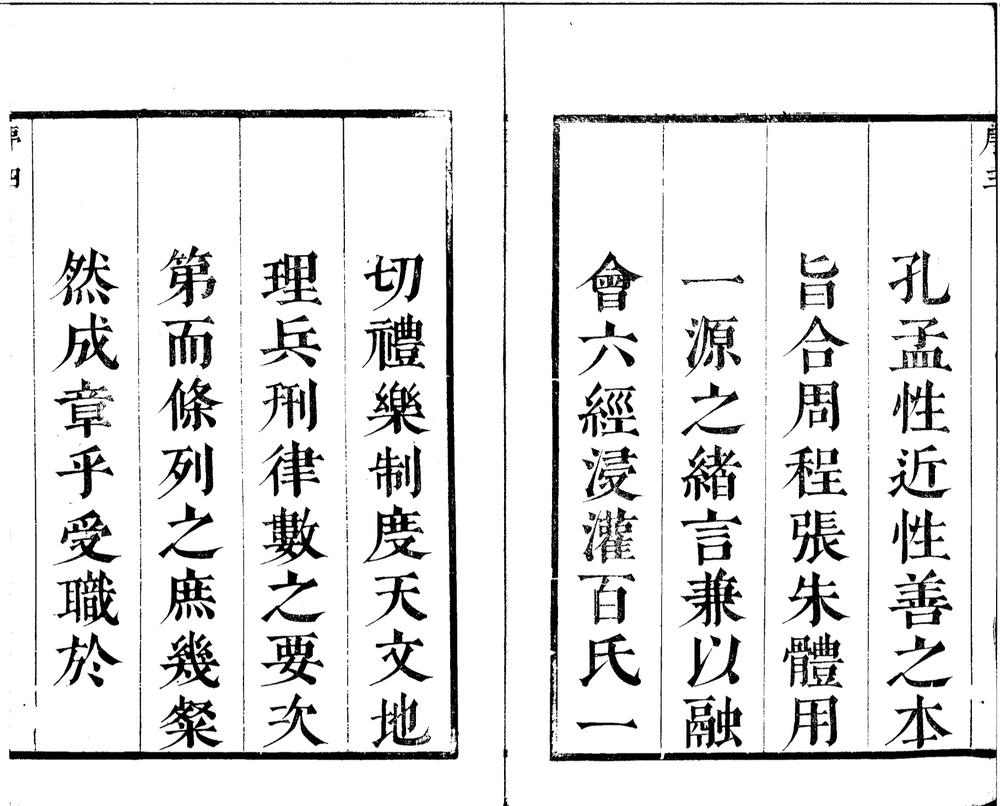 序三
孔孟性近性善之本
旨合周程張朱體用
一源之緒言兼以融
會六經浸灌百氏一
切禮樂制度天文地
理兵刑律數之要次
第而條列之庶幾粲
然成章乎受職於
序四